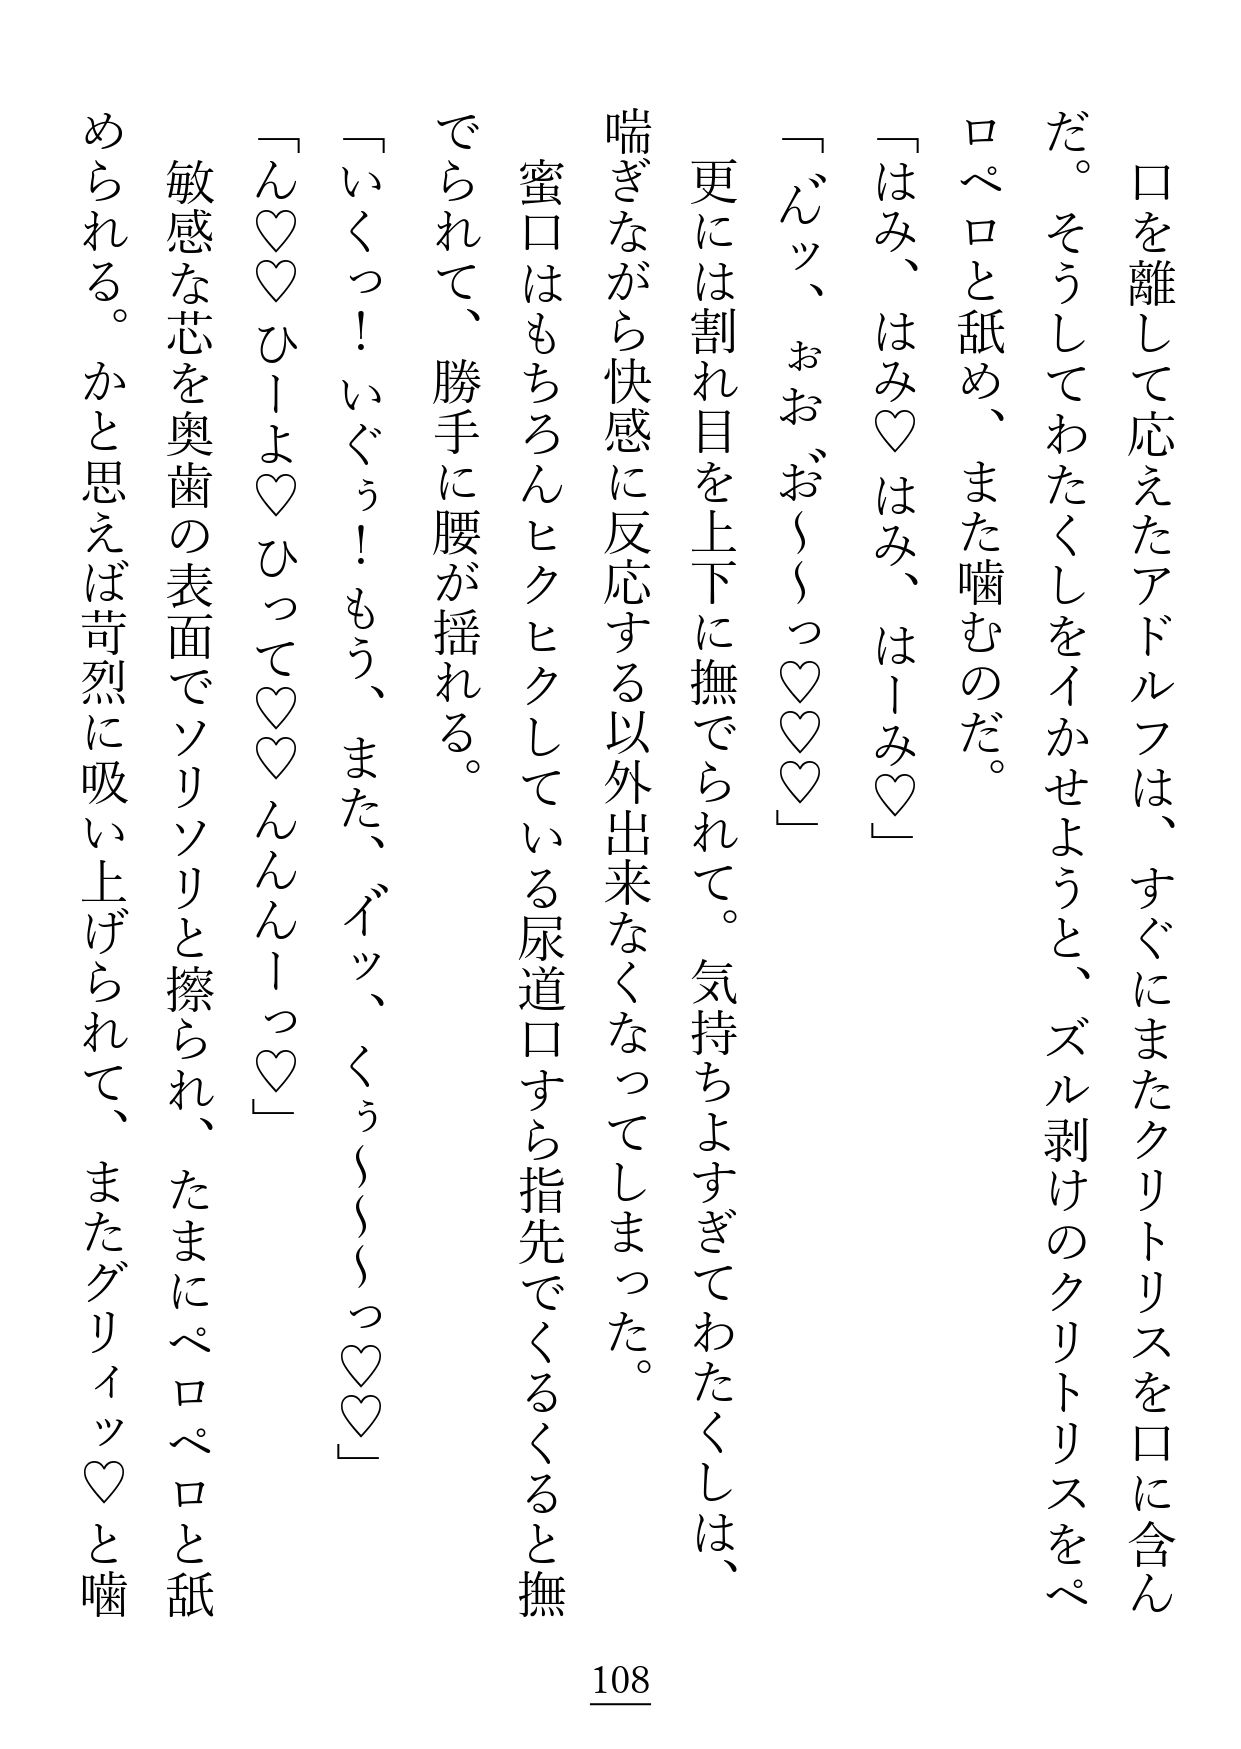 口を離して応えたアドルフは、すぐにまたクリトリスを口に含ん
だ。そうしてわたくしをイかせようと、ズル剥けのクリトリスをペ
ロペロと舐め、また噛むのだ。
「はみ、はみ♡はみ、はーみ♡」
「ん゛ッ、ぉおお゛～～っ♡♡♡」
更には割れ目を上下に撫でられて。気持ちよすぎてわたくしは、
喘ぎながら快感に反応する以外出来なくなってしまった。
蜜口はもちろんヒクヒクしている尿道口すら指先でくるくると撫
でられて、勝手に腰が揺れる。
「いくっ！いぐぅ！もう、また、イ゛ッ、くぅ～～～っ♡♡」
「ん♡♡ひーよ♡ひって♡♡んんんーっ♡」
敏感な芯を奥歯の表面でソリソリと擦られ、たまにペロペロと舐
められる。かと思えば苛烈に吸い上げられて、またグリィッ♡と噛
108